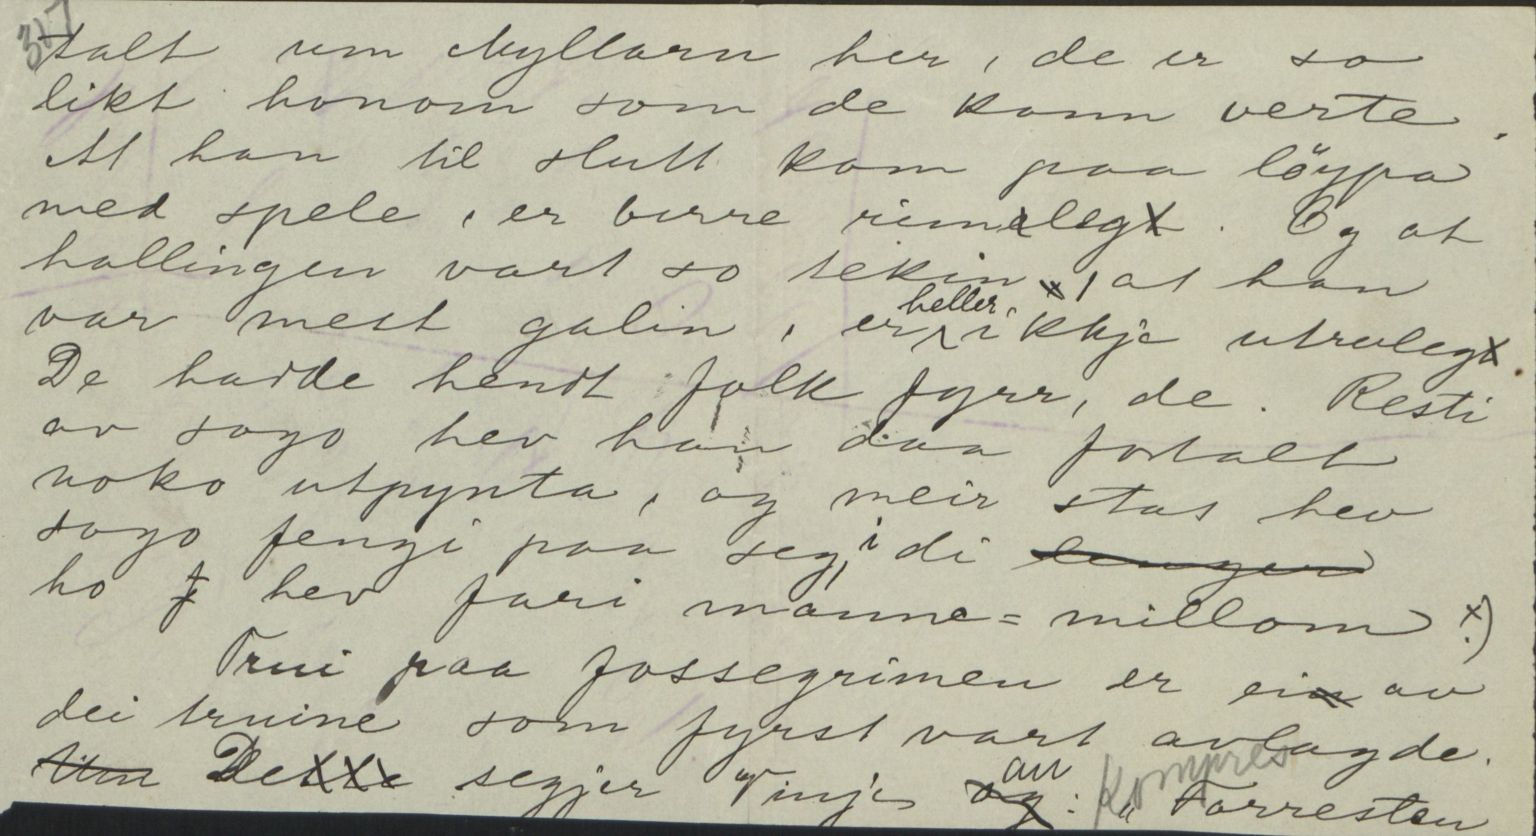 317
talt um Myllarn her, de er so
likt honom som de kann verte.
At han til slutt kom paa löypa
med spele, er berre rimeleg. Og at
hallingen vart so tekin, at han
var mest galin, er heller ikkje utruleg.
De hadde hendt folk fyrr, de. Resti
av sogo hev han daa fortalt
noko utpynta, og meir stas hev
sogo fengi paa seg, i di lenger
ho f hev fari manne=millom x)
Trui paa fossegrimen er ei av
dei truine som fyrst vart avlagde.
Um De segjer Vinje au: "Torresten
Kompres